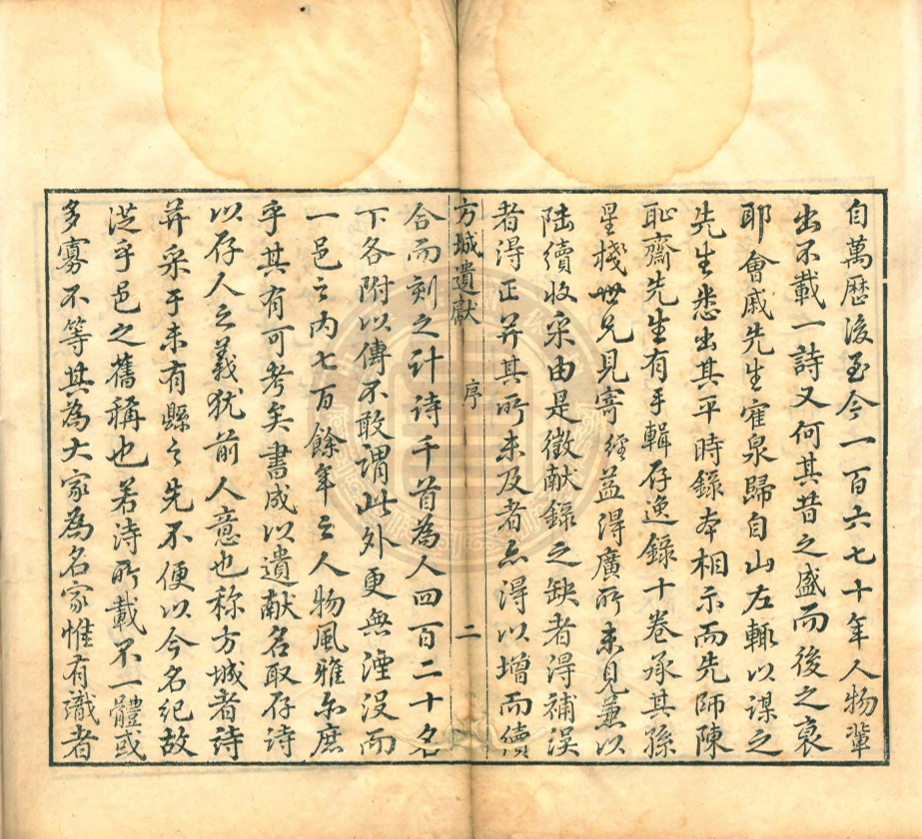 自萬歷後至今一百六七十年人物輩
出不載一詩又何其昔之盛而後之衰
耶會戚先生寉泉歸自山左輙以謀之
先生悉出其平時錄夲相示而先師陳
恥齋先生有手輯存逸錄十卷承其孫
星棧世兄見寄經益得廣所未見兼以
陸續收采由是徵献錄之缺者得補误
者得正并其所未及者亦得以增而續
方城遺献 序 二
合而刻之计诗千首為人四百二十名
下各附以傳不敢謂此外更無湮没而
一邑之内七百餘年之人物風雅亦庶
乎其有可考矣書成以遺献名取存诗
以存人之義犹前人意也称方城者詩
并采于未有縣之先不便以今名紀故
從乎邑之舊稱也若诗所載不一體或
多寡不等其為大家為名家惟有識者